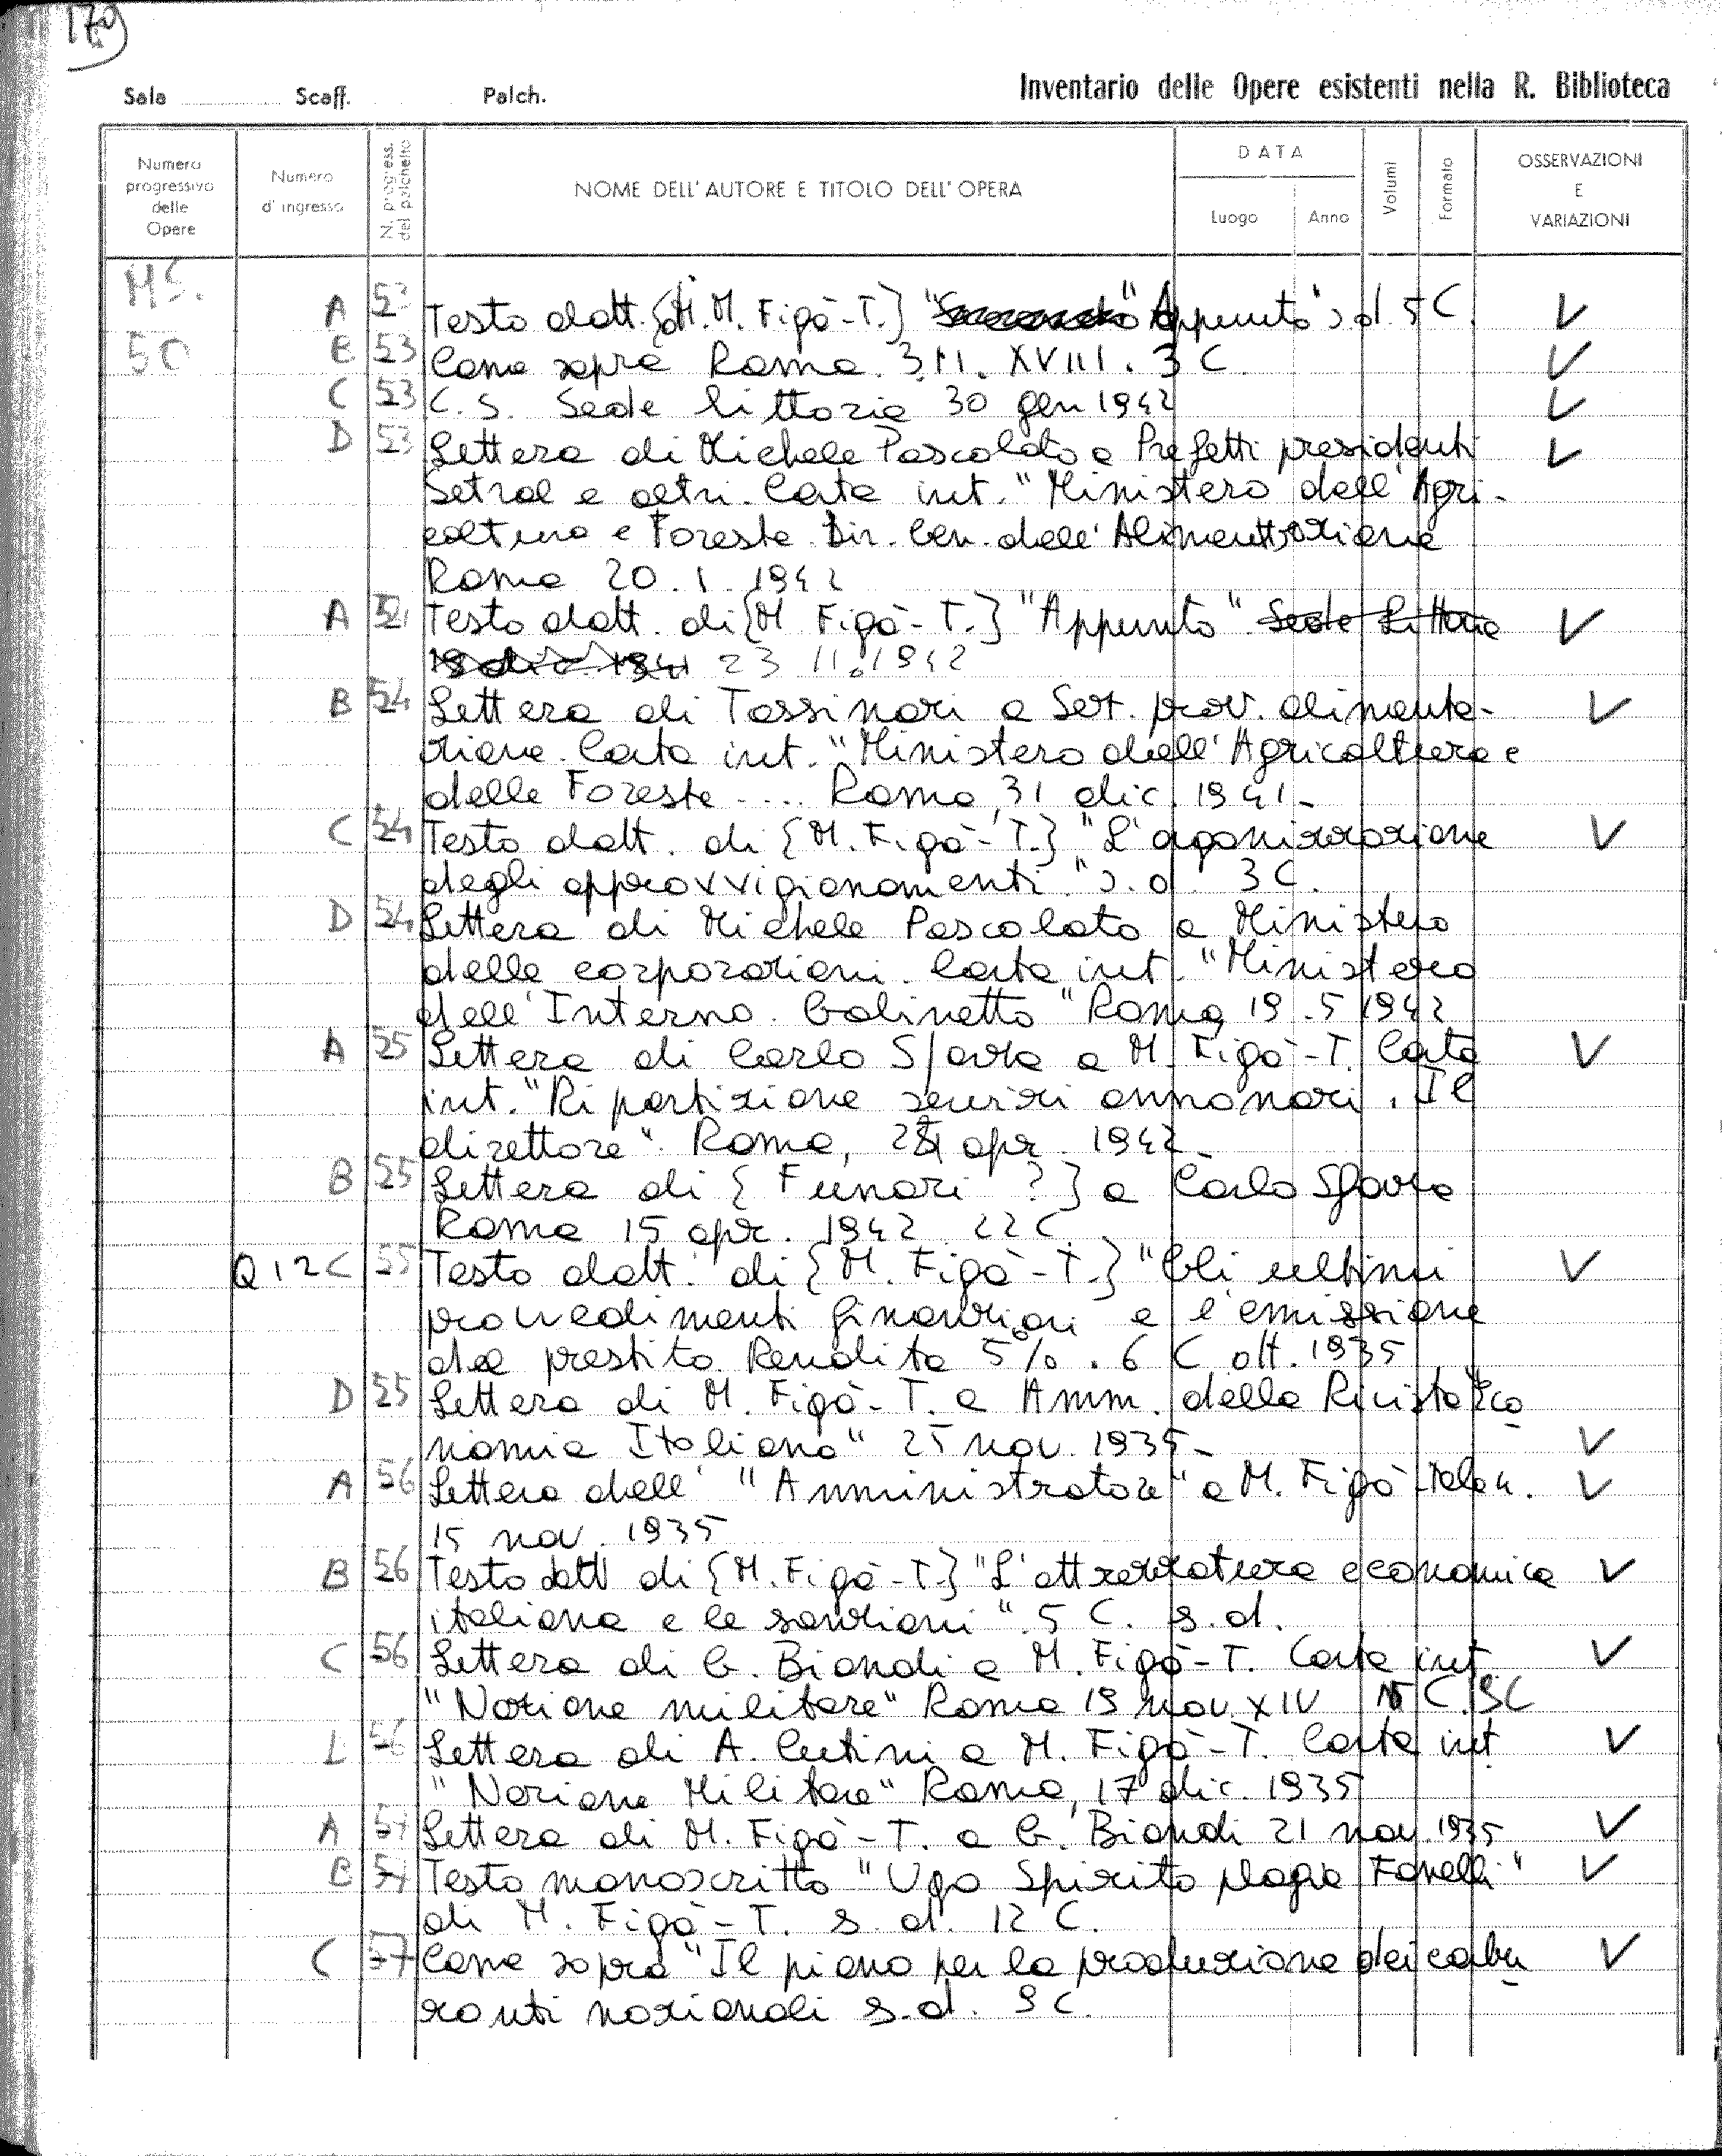 170
Sala Scaff. Palch. Inventario delle Opere esistenti nella R. Biblioteca
Numero progressivo delle Opere
Numero d'ingresso
N. progress. del palchetto
NOME DELL'AUTORE E TITOLO DELL'OPERA
DATA
Luogo
Anno
Volumi
Formato
OSSERVAZIONI E VARIAZIONI
MS.
50
A 53 Testo datt. {di M. Figà-T.} "Appunto" s.d. 5 C. V
B 53 Come sopra Roma. 3.11. XVIII. 3 C. V
C 53 C.S. Sede Littoria 30 gen 1942 V
D 53 Lettera di Michele Pascolato a Prefetti presidenti V
Setral e altri. Carta int. "Ministero dell'Agri-
coltura e Foreste Dir. Gen. dell'Alimentazione
Roma 20.1.1942
A 54 Testo datt. di {M Figà-T.} "Appunto". Sede Littoria V
19 dic. 1941 23 11.1942
B 54 Lettera di Tassinari a Set. prov. alimenta- V
zione. Carta int. "Ministero dell'Agricoltura e
delle Foreste .... Roma, 31 dic. 1941-
C 54 Testo datt. di {M. Figà-T.} "L'organizzazione V
degli approvvigionamenti." s.d. 3 C.
D 54 Lettera di Michele Pascolato a Ministero
delle corporazioni. Carta int. "Ministero
dell'Interno. Gabinetto" Roma, 19.5 1942
A 55 Lettera di Carlo Sforza a M. Figà-T. Carta V
int. "Ripartizione servizi annonari. Il
direttore". Roma, apr. 1942-
B 55 Lettera di {Funari ?} a Carlo Sforza
Roma 15 apr. 1942 22 C.
Q 12 C 55 Testo datt. di {M. Figà-T.} "Gli ultimi V
provvedimenti finanziari e l'emissione
del prestito Rendita 5%. 6 C ott. 1935
D 55 Lettera di M. Figà-T. a Amm. della Rivista "Eco
nomia Italiana" 25 nov. 1935- V
A 56 Lettera dell' "Amministratore" a M. Figà-Talam. V
15 nov. 1935
B 56 Testo datt di {M. Figà-T.} "L'attrezzatura economica V
italiana e le sanzioni". 5 C. s.d.
C 56 Lettera di G. Biondi a M. Figà-T. Carta int. V
"Nazione militare" Roma 19 nov. XIV C. 9C
56 Lettera di A. Cutini a M. Figà-T. Carta int V
"Nazione Militare" Roma, 17 dic. 1935
A 57 Lettera di M. Figà-T. a G. Biondi 21 nov. 1935 V
B 57 Testo manoscritto "Ugo Spirito plagia Fanelli" V
di M. Figà-T. s.d. 12 C.
C 57 Come sopra "Il piano per la produzione dei carbu V
ranti nazionali s.d. 9 C.